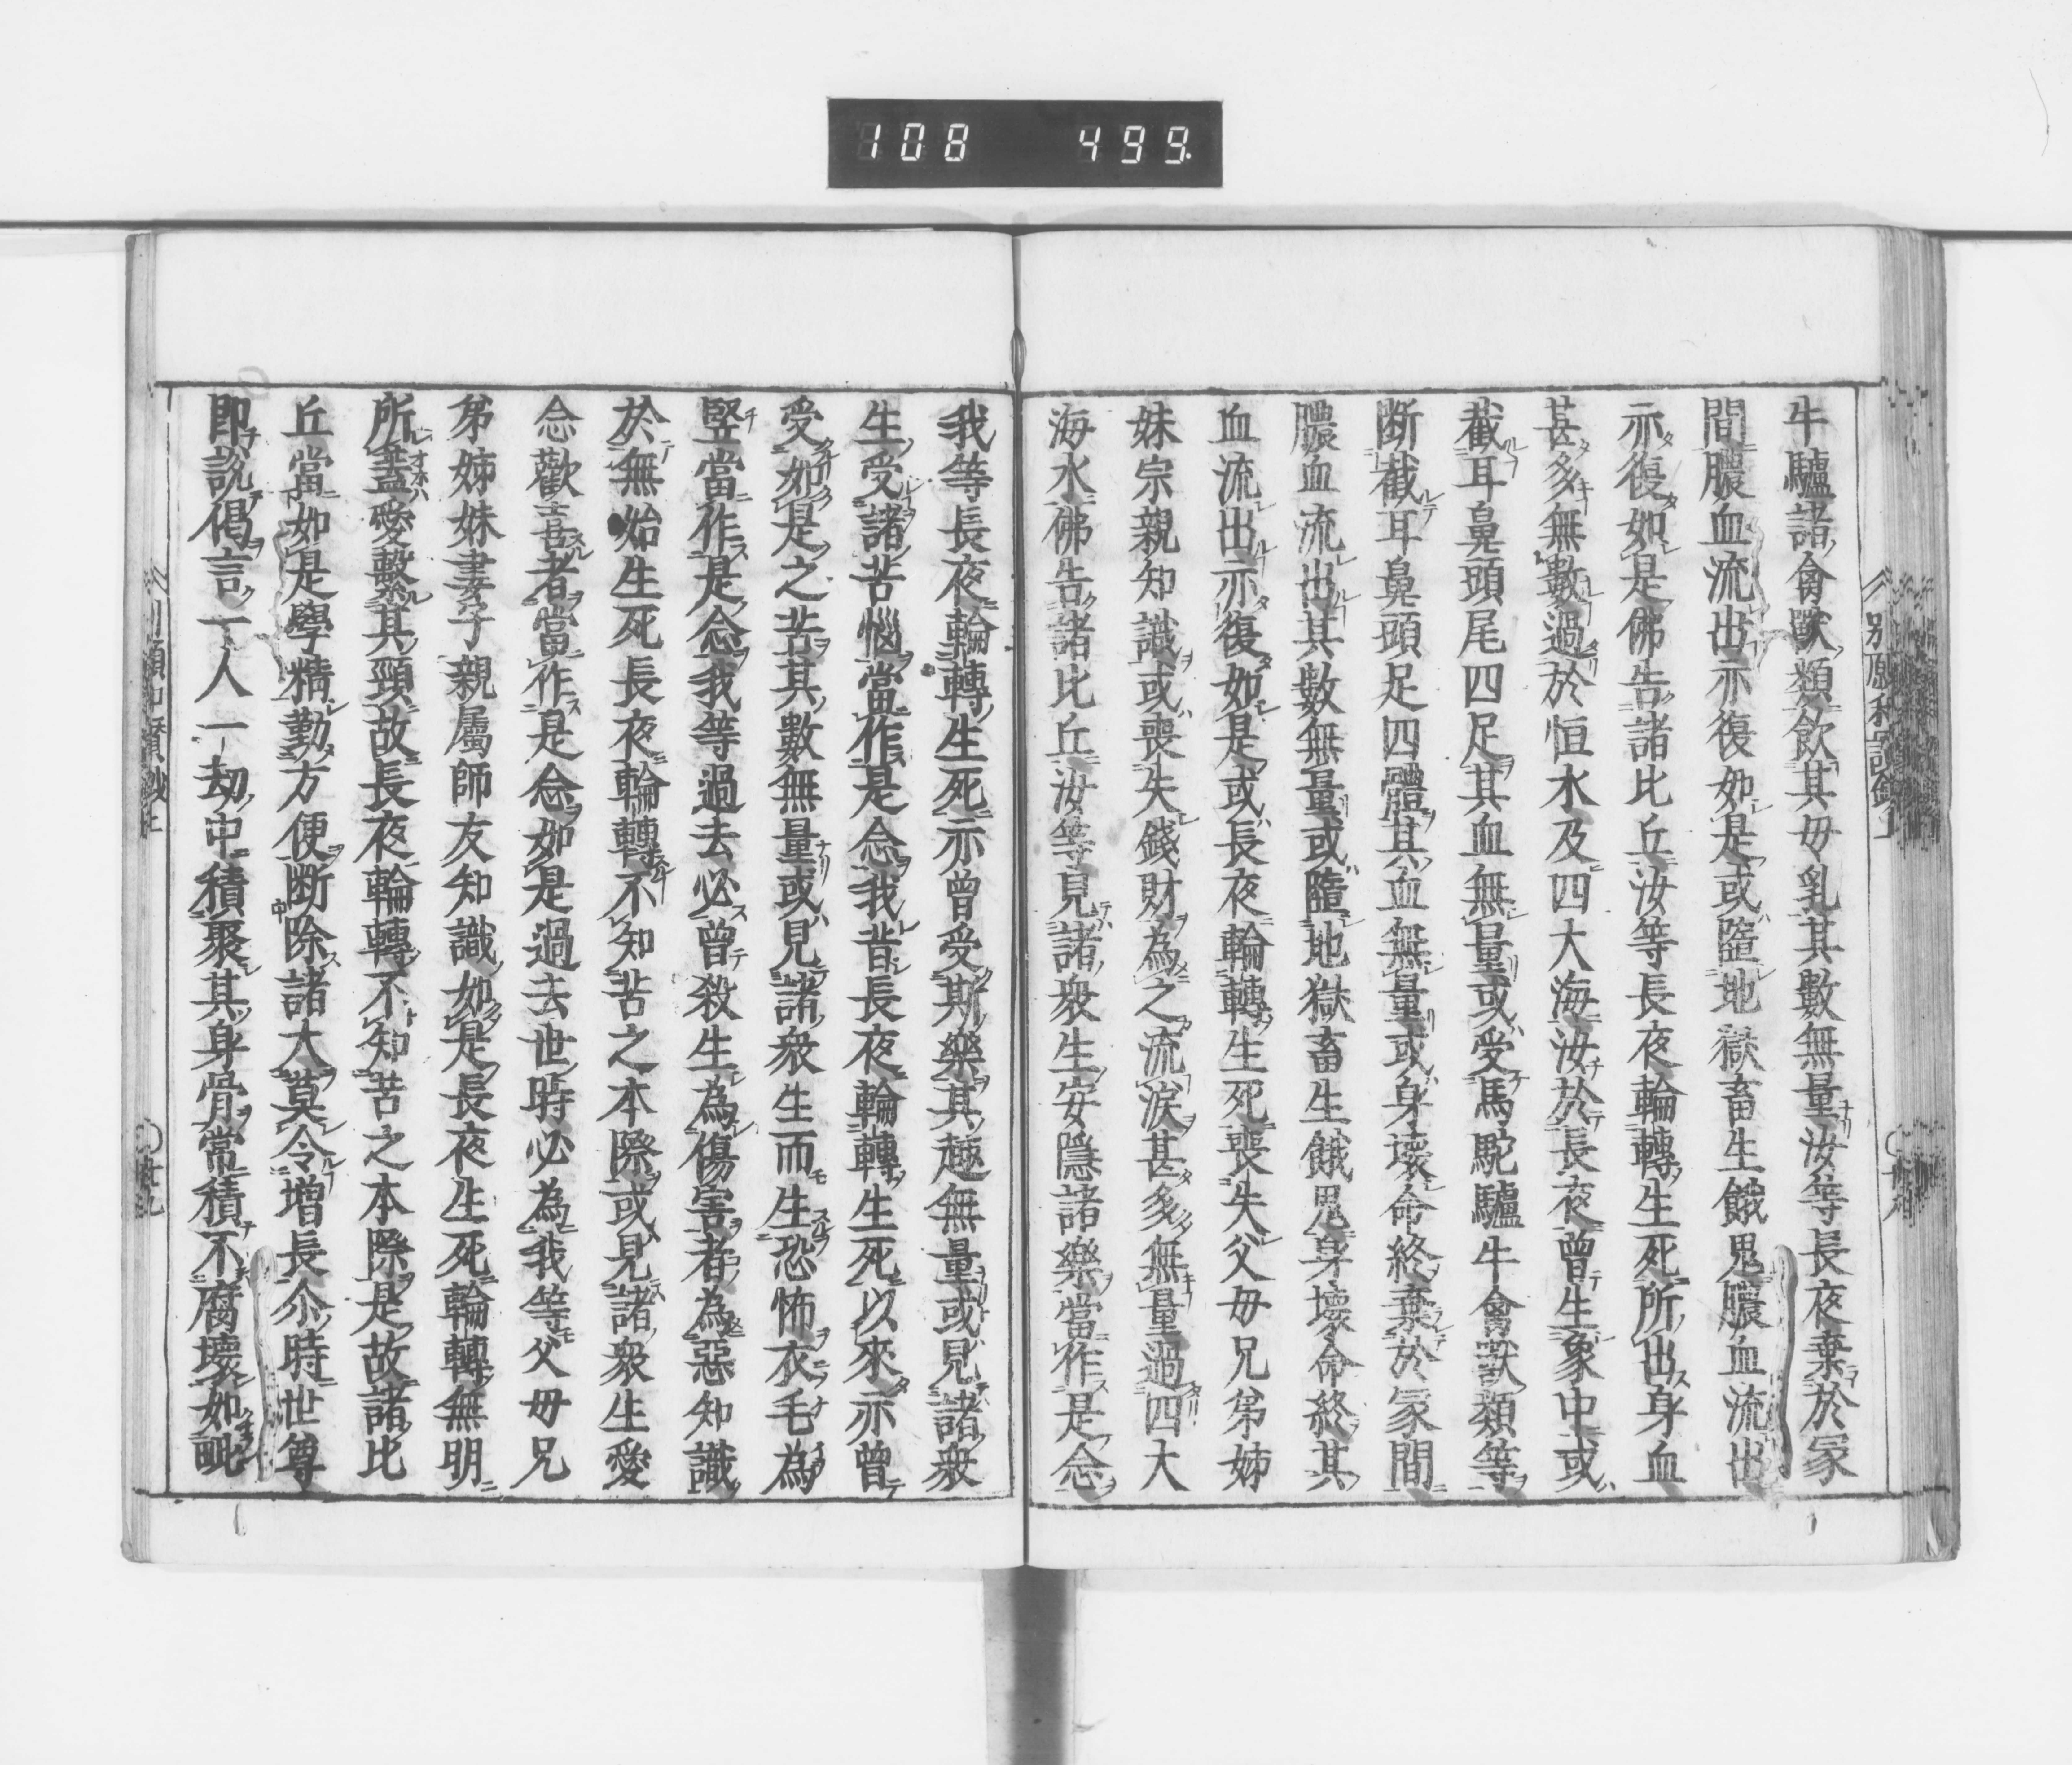 108 499.
牛驢諸禽獸類飲其母乳其數無量汝等長夜棄於冢
間膿血流出亦復如是或墮地獄畜生餓鬼膿血流出
亦復如是佛告諸比丘汝等長夜輪轉生死所出身血
甚多無數過於恒水及四大海汝於長夜曾生象中或
截耳鼻頭尾四足其血無量或受馬駝驢牛禽獸類等
断截耳鼻頭足四體其血無量或身壞命終棄於冢間
膿血流出其數無量或墮地獄畜生餓鬼身壞命終其
血流出亦復如是或長夜輪轉生死喪失父母兄弟姊
妹宗親知識或喪失錢財為之流淚甚多無量過四大
海水佛告諸比丘汝等見諸衆生安隱諸樂當作是念
我等長夜輪轉生死亦曾受斯樂其趣無量或見諸衆
生受諸苦惱當作是念我昔長夜輪轉生死以來亦曾
受如是之苦其數無量或見諸衆生而生恐怖衣毛為
竪當作是念我等過去必曾殺生為傷害者為惡知識
於無始生死長夜輪轉不知苦之本際或見諸衆生愛
念歡喜者當作是念如是過去世時必為我等父母兄
弟姊妹妻子親屬師友知識如是長夜生死輪轉無明
所蓋愛繫其頸故長夜輪轉不知苦之本際是故諸比
丘當如是學精勤方便断除諸大莫令增長尒時世尊
即說偈言一人一劫中積聚其身骨常積不腐壞如毗